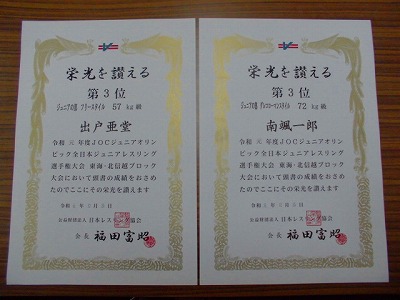 栄光を讃える
第3位
ジュニアの部 フリースタイル 57 kg 級
出戸亜堂
令和 元 年度JOCジュニアオリン
ピック全日本ジュニアレスリング
選手権大会 東海・北信越ブロック
大会において頭書の成績をおさめ
たのでここにその栄光を讃えます
公益財団法人 日本レスリング協会
会長 福田富昭
栄光を讃える
第3位
ジュニアの部 グレコローマンスタイル 72 kg 級
南颯一郎
令和 元 年度JOCジュニアオリン
ピック全日本ジュニアレスリング
選手権大会 東海・北信越ブロック
大会において頭書の成績をおさめ
たのでここにその栄光を讃えます
公益財団法人 日本レスリング協会
会長 福田富昭